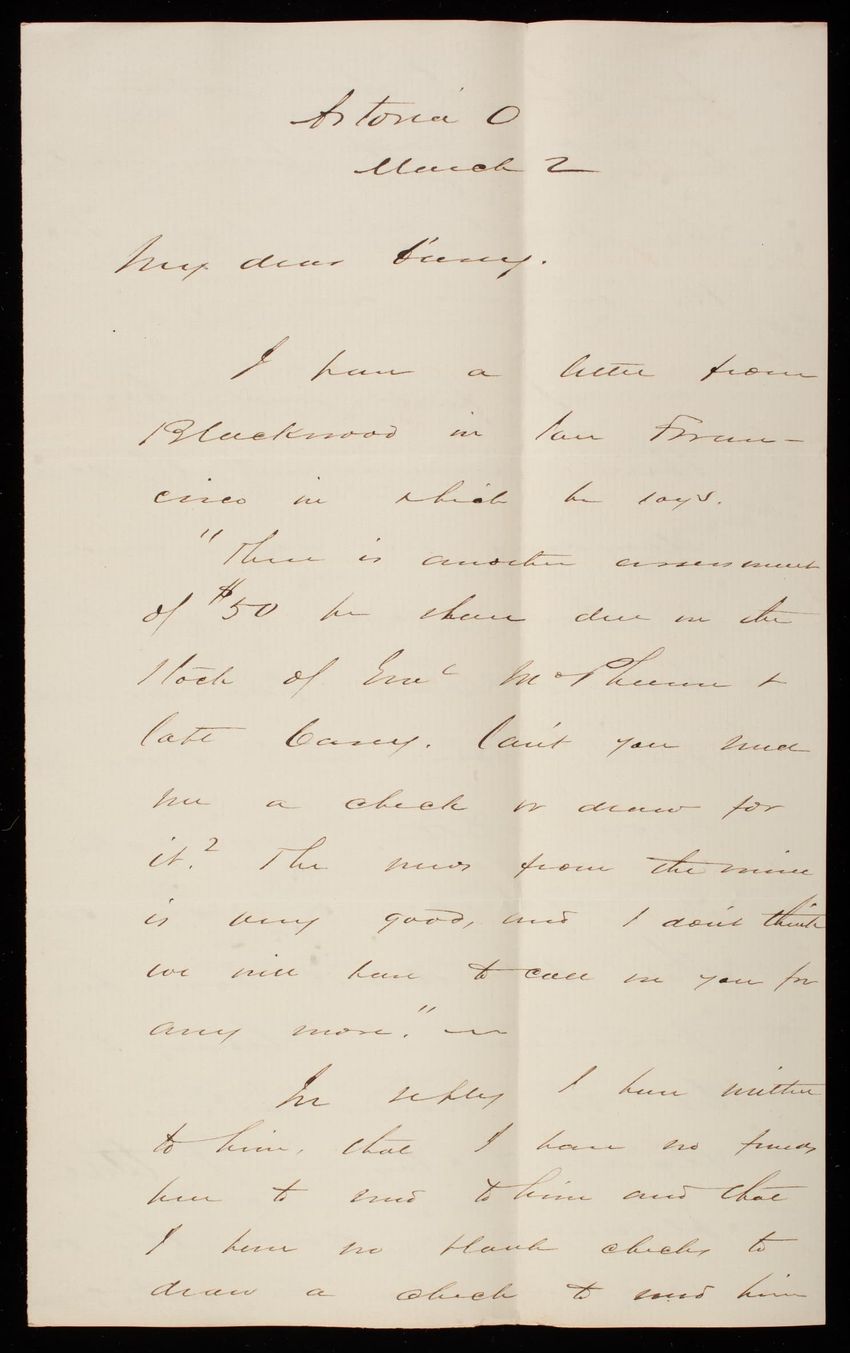 Astoria O
March 2
My dear Casey.
I have a letter from
Blackwood in San Fran-
cisco in which he says.
"There is another assessment
of $50 per share due on the
Stock of Genl McPherson &
late Casey. Can't you send
me a check or draw for
it.? The news from the mine
is very good, and I don't think
we will have to call on you for
any more." —
In reply I have written
to him, that I have no funds
here to send to him and that
I have no blank checks to
draw a check to send him